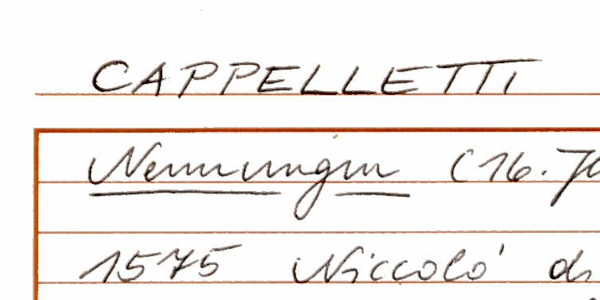 CAPPELLETTI
Nennungen (16. Jh
1575 Niccolò di